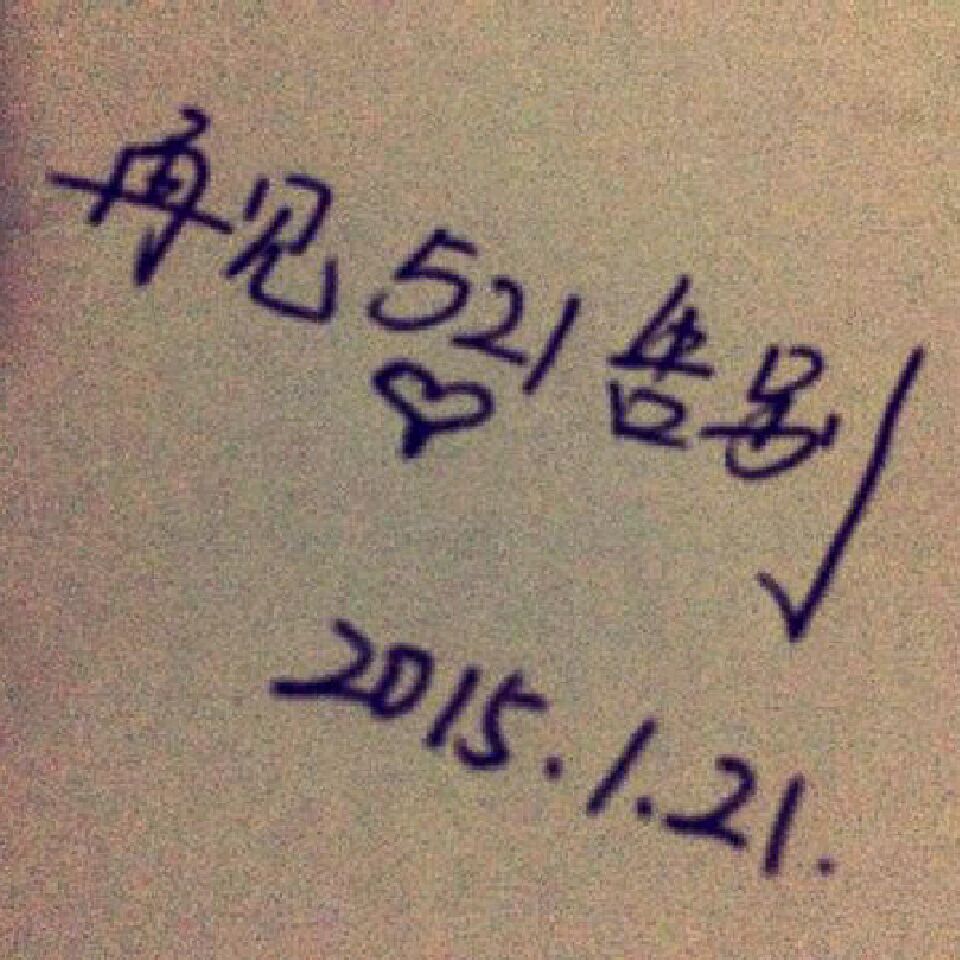 再见521告别
2015.1.21.